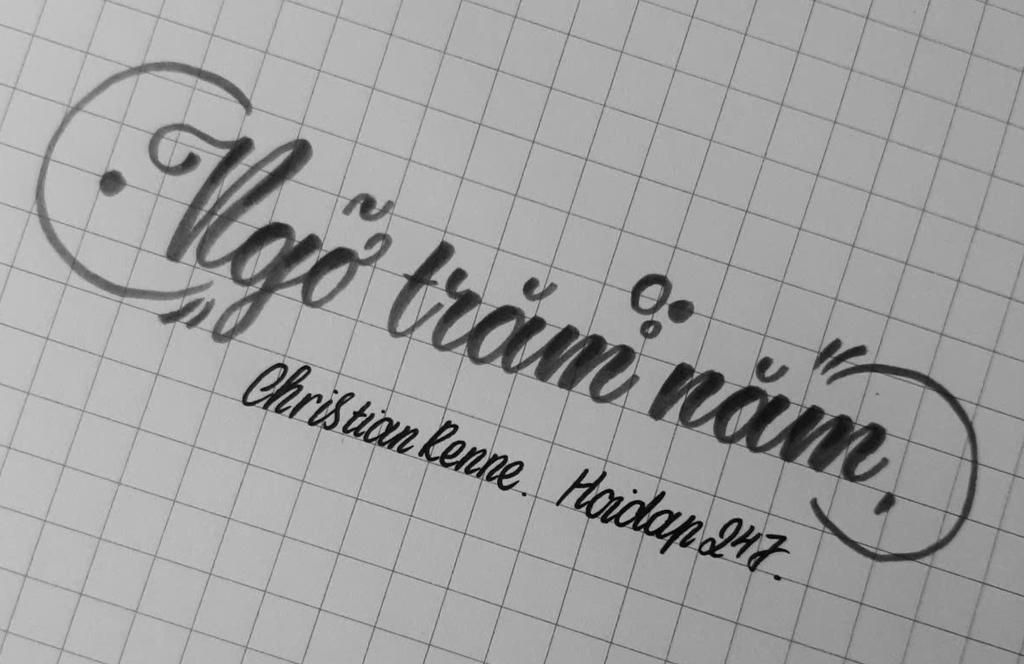 Ngỡ trăm năm.
Christian Renne. Hoidap247.